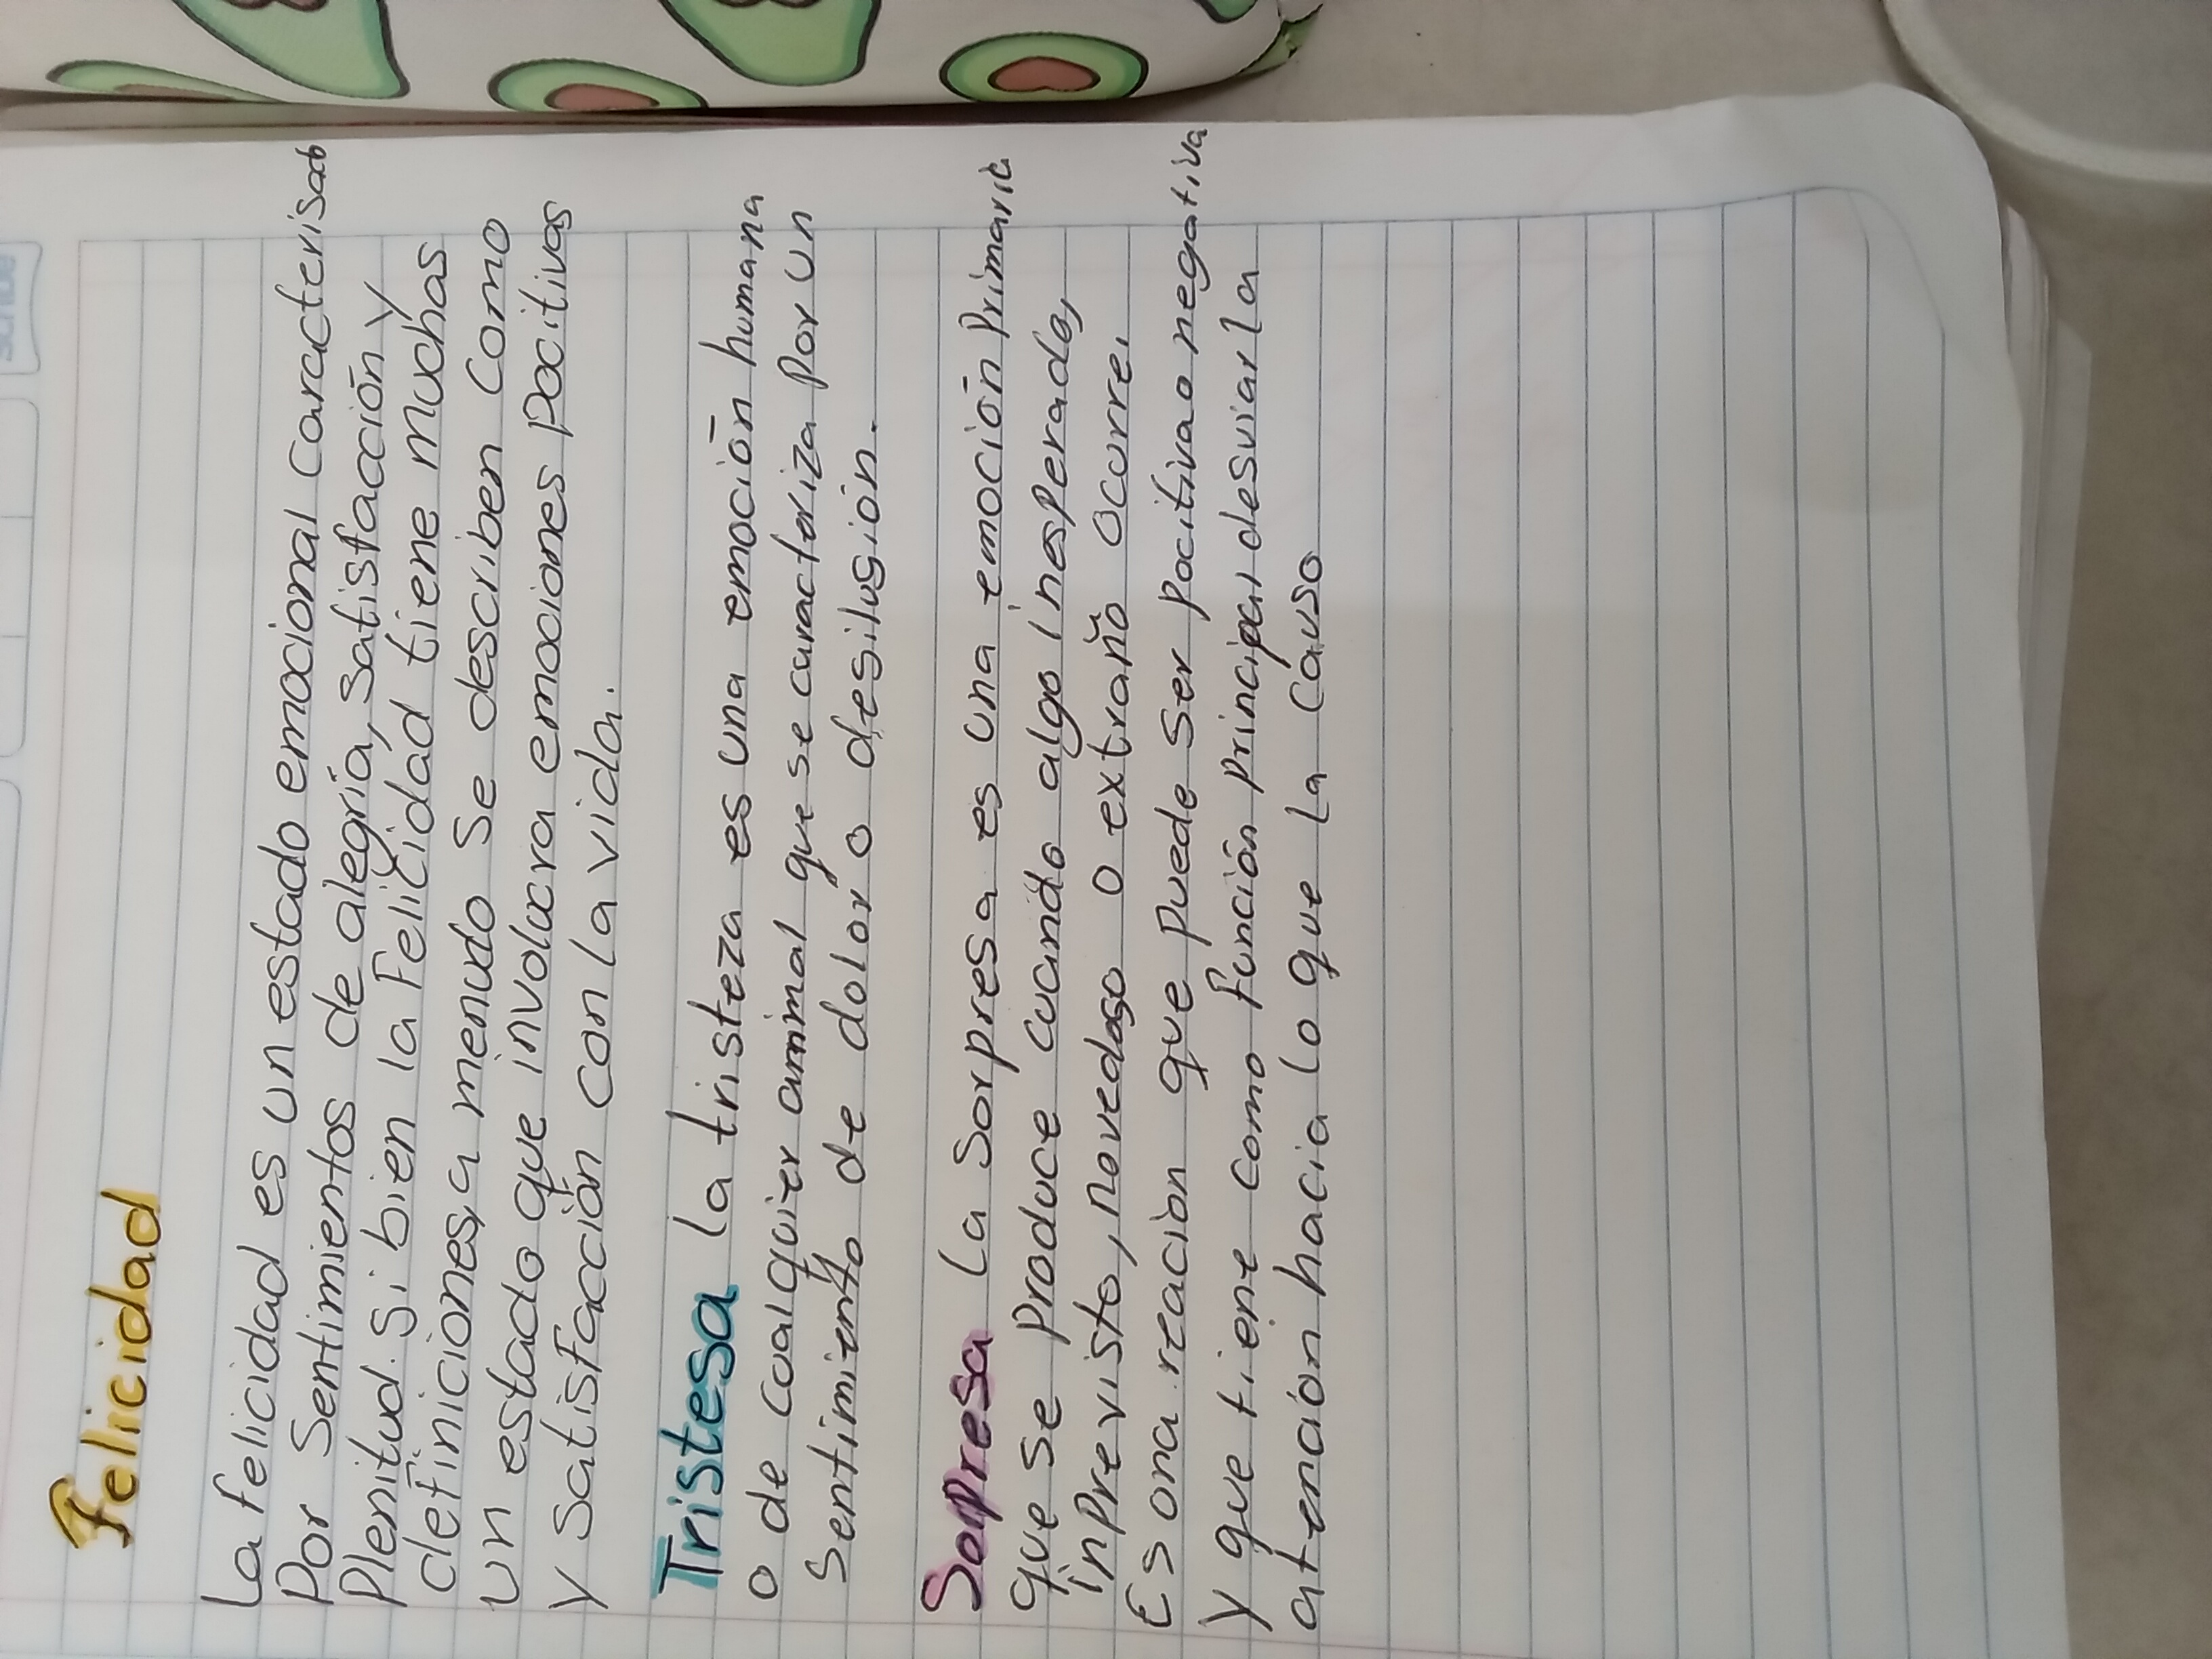 Felicidad
La felicidad es un estado emocional caracterisado
Por Sentimientos de alegría, satisfacción y
Plenitud. Si bien la Felicidad tiene muchas
definiciones, a menudo Se describen Como
un estado que involucra emociones pocitivas
y satisfacción con la vida.
Tristesa la tristeza es una emoción humana
o de cualquier animal que se caracteriza Por un
Sentimiento de dolor o desilusión.
Sorpresa La Sorpresa es una emoción Primaria
que se Produce cuando algo inesperado,
inprevisto, novedoso o extraño ocurre.
Es una reacion que puede ser pocitiva o negativa
y que tiene como función principal desviar la
atención hacia lo que la causo